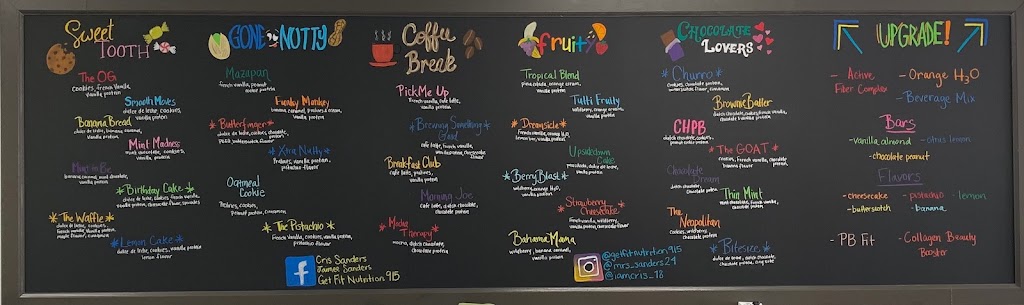 Sweet
TOOTH
The OG
cookies, french vanilla,
vanilla protein
Smooth Moves
dulce de leche, cookies,
vanilla protein
Banana Bread
dulce de leche, banana, caramel,
vanilla protein
Mint Madness
mint chocolate, cookies,
vanilla protein
Mint to Be
banana caramel, mint chocolate,
vanilla protein
*Birthday Cake*
dulce de leche, cookies, french vanilla,
vanilla protein, cheesecake flavor, sprinkles
*The Waffle*
dulce de leche, cookies,
french vanilla, vanilla protein,
waffle flavor, cinnamon
*Lemon Cake*
dulce de leche, cookies, vanilla protein
lemon flavor
GONE NUTTY
Mazapan
french vanilla, peanut,
vanilla protein
Funky Monkey
banana caramel, pralines & cream,
vanilla protein
*Butterfinger*
dulce de leche, cookies, chocolate protein,
PB fit, butterscotch flavor
*Xtra Nutty*
Pralines, vanilla protein,
pistachio flavor
Oatmeal
Cookie
Pralines, cookies,
peanut protein, cinnamon
*The Pistachio*
french vanilla, cookies, vanilla protein,
pistachio flavor
Coffee
Break
PickMe Up
french vanilla, cafe latte,
vanilla protein
*Brewing Something
Good
cafe latte, french vanilla,
vanilla protein, cheesecake
flavor
Breakfast Club
cafe latte, pralines,
vanilla protein
Morning Joe
cafe latte, dutch chocolate,
chocolate protein
Mocha
Therapy
mocha, dutch chocolate,
chocolate protein
fruity
Tropical Blend
pina colada, orange cream,
vanilla protein
Tutti Fruity
wildberry, orange cream,
vanilla protein
*Dreamsicle*
french vanilla, orange H3O,
vanilla protein
Upsidedown
Cake
pina colada, dulce de leche,
vanilla protein
*BerryBlast*
wildberry, orange H3O,
vanilla protein
*Strawberry
Cheesecake*
french vanilla, wildberry,
vanilla protein, cheesecake flavor
BahamaMama
wildberry, banana caramel,
vanilla protein
CHOCOLATE
LOVERS
*Churro*
cookies, chocolate protein,
butterscotch flavor, cinnamon
BrownieBatter
dutch chocolate, cookies,
chocolate protein
CHPB
dutch chocolate, cookies,
peanut protein
*The GOAT*
cookies, french vanilla, chocolate
banana flavor
Chocolate
Dream
dutch chocolate,
chocolate protein
Thin Mint
mint chocolate, french vanilla,
chocolate protein
The
Neapolitan
cookies, wildberry,
chocolate protein
*Bitesize*
dulce de leche, dutch chocolate,
chocolate protein
UPGRADE!
- Active
Fiber Complex
- Orange H3O
- Beverage Mix
Bars
- vanilla almond
- citrus lemon
- chocolate peanut
Flavors
- cheesecake
- pistachio
- lemon
- butterscotch
- banana
- PB Fit
- Collagen Beauty
Booster
f
Cris Sanders
James Sanders
Get Fit Nutrition 915
@getfitnutrition915
@mrs_sanders24
@iamcris_18